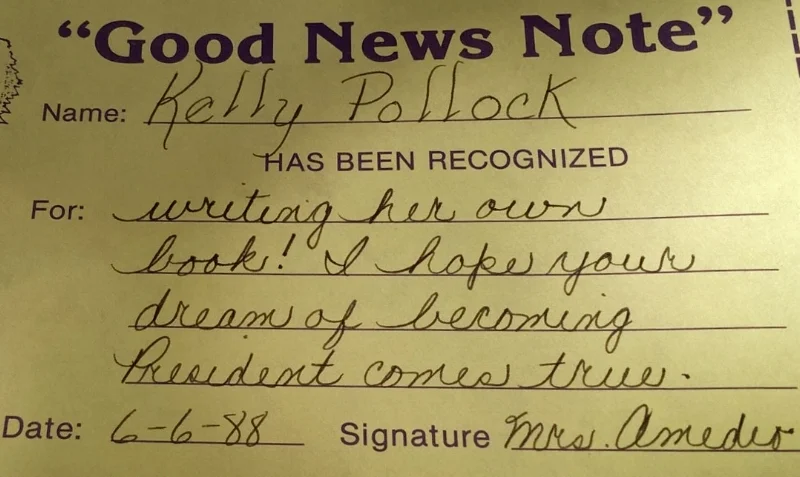 “Good News Note”
Name: Kelly Pollock
HAS BEEN RECOGNIZED
For: writing her own
book! I hope your
dream of becoming
President comes true.
Date: 6-6-88 Signature Mrs. Amedeo